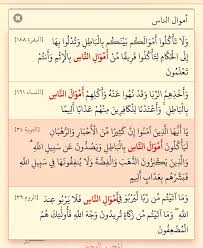 أموال الناس
وَلَا تَأْكُلُوا أَمْوَالَكُم بَيْنَكُم بِالْبَاطِلِ وَتُدْلُوا بِهَا [البقرة ١٨٨]
إِلَى الْحُكَّامِ لِتَأْكُلُوا فَرِيقًا مِّنْ أَمْوَالِ النَّاسِ بِالْإِثْمِ وَأَنتُمْ
تَعْلَمُونَ
وَأَخْذِهِمُ الرِّبَا وَقَدْ نُهُوا عَنْهُ وَأَكْلِهِمْ أَمْوَالَ النَّاسِ [النساء ١٦١]
بِالْبَاطِلِ وَأَعْتَدْنَا لِلْكَافِرِينَ مِنْهُمْ عَذَابًا أَلِيمًا
يَا أَيُّهَا الَّذِينَ آمَنُوا إِنَّ كَثِيرًا مِّنَ الْأَحْبَارِ وَالرُّهْبَانِ [التوبة ٣٤]
لَيَأْكُلُونَ أَمْوَالَ النَّاسِ بِالْبَاطِلِ وَيَصُدُّونَ عَن سَبِيلِ اللَّهِ
وَالَّذِينَ يَكْنِزُونَ الذَّهَبَ وَالْفِضَّةَ وَلَا يُنفِقُونَهَا فِي سَبِيلِ اللَّهِ
فَبَشِّرْهُم بِعَذَابٍ أَلِيمٍ
وَمَا آتَيْتُم مِّن رِّبًا لِّيَرْبُوَ فِي أَمْوَالِ النَّاسِ فَلَا يَرْبُو عِندَ [الروم ٣٩]
اللَّهِ وَمَا آتَيْتُم مِّن زَكَاةٍ تُرِيدُونَ وَجْهَ اللَّهِ فَأُولَٰئِكَ هُمُ
الْمُضْعِفُونَ